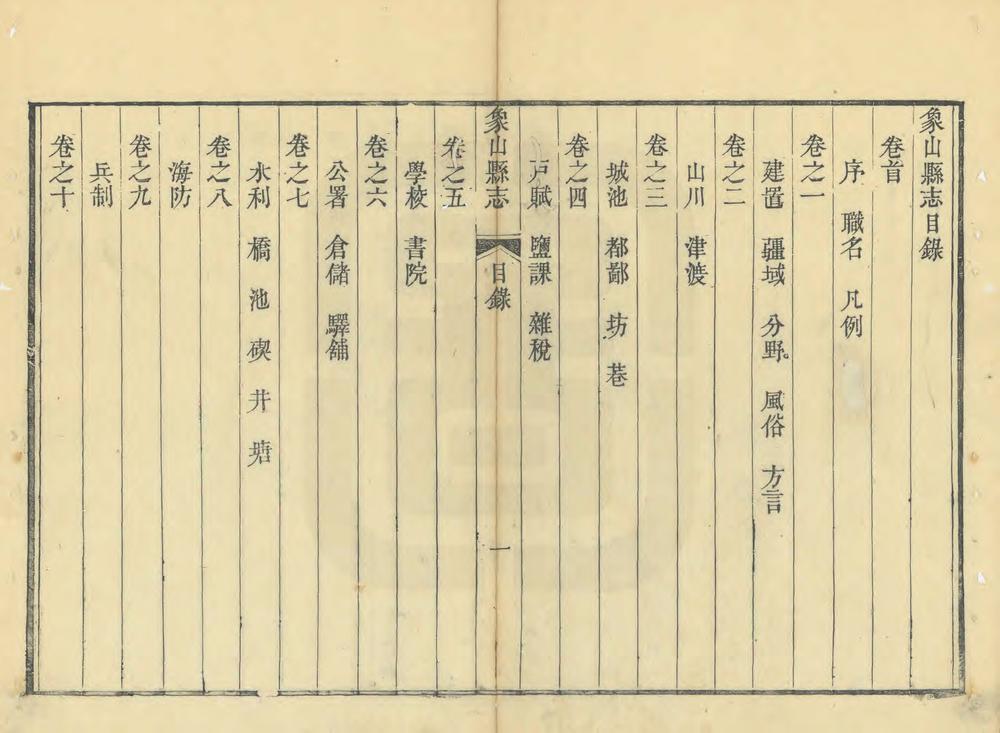 象山縣志目錄
卷首
序 職名 凡例
卷之一
建置 疆域 分野 風俗 方言
卷之二
山川 津渡
卷之三
城池 都鄙 坊 巷
卷之四
戸賦 鹽課 雜稅
象山縣志 目錄 一
卷之五
學校 書院
卷之六
公署 倉儲 驛舖
卷之七
水利 橋 池 碶 井 塘
卷之八
海防
卷之九
兵制
卷之十